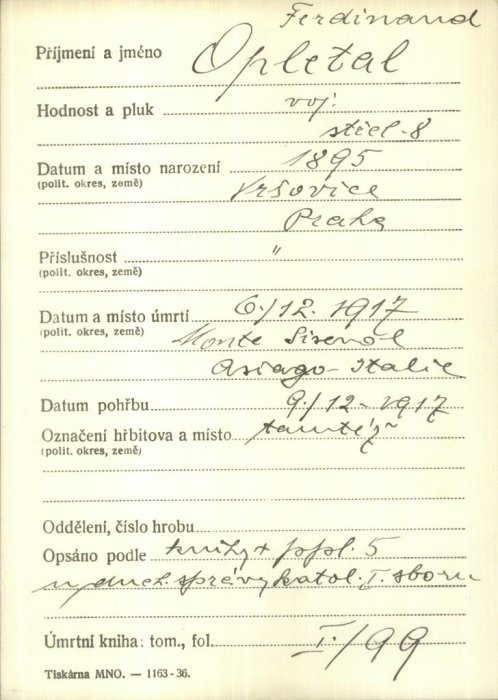 Ferdinand
Příjmení a jméno Opletal
Hodnost a pluk voj.
střel. 8
Datum a místo narození 1895
(polit. okres, země) Vršovice
Praha
Příslušnost "
(polit. okres, země)
Datum a místo úmrtí 6./12. 1917
(polit. okres, země) Monte Sisemol
Asiago - Italie
Datum pohřbu 9./12 - 1917
Označení hřbitova a místo tamtéž
(polit. okres, země)
Oddělení, číslo hrobu
Opsáno podle knihy + ppl. 5
u duch. správy katol. I. sboru
Úmrtní kniha: tom., fol. I./99
Tiskárna MNO. — 1163-36.